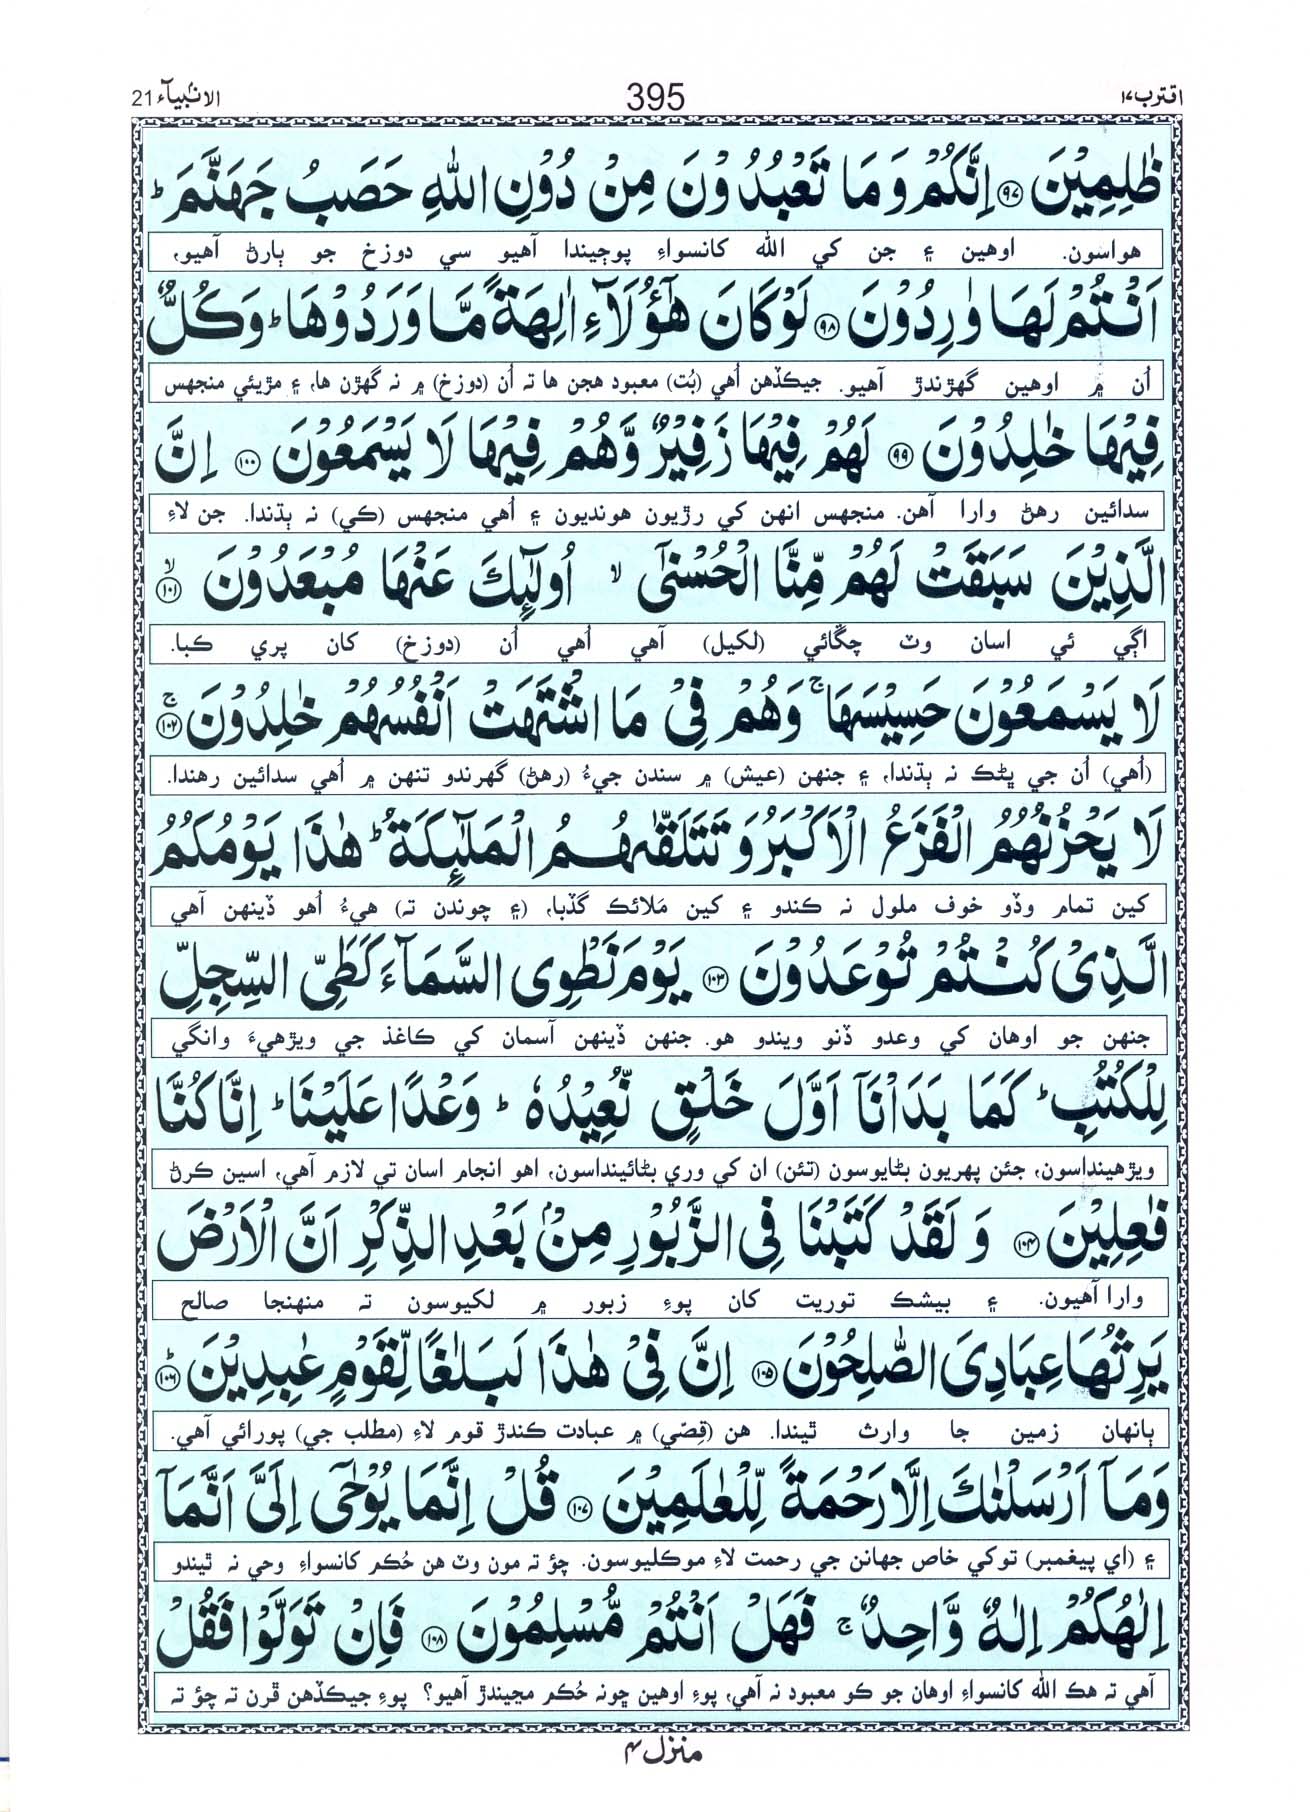 اقترب ١٧ 395 الانبیآء 21
ظٰلِمِیْنَ ﴿٩٧﴾ اِنَّکُمْ وَ مَا تَعْبُدُوْنَ مِنْ دُوْنِ اللّٰهِ حَصَبُ جَهَنَّمَ ؕ
هواسون. اوهين ۽ جن کي الله کانسواءِ پوڄيندا آهيو سي دوزخ جو ٻارڻ آهيو،
اَنْتُمْ لَهَا وٰرِدُوْنَ ﴿٩٨﴾ لَوْ کَانَ هٰۤؤُلَآءِ اٰلِهَةً مَّا وَرَدُوْهَا ؕ وَ کُلٌّ
اُن ۾ اوهين گهڙندڙ آهيو. جيڪڏهن اُهي (بُت) معبود هجن ها ته اُن (دوزخ) ۾ نه گهڙن ها، ۽ مڙيئي منجهس
فِیْهَا خٰلِدُوْنَ ﴿٩٩﴾ لَهُمْ فِیْهَا زَفِیْرٌ وَّ هُمْ فِیْهَا لَا یَسْمَعُوْنَ ﴿١٠٠﴾ اِنَّ
سدائين رهڻ وارا آهن. منجهس انهن کي رڙيون هونديون ۽ اُهي منجهس (ڪي) نه ٻڌندا. جن لاءِ
الَّذِیْنَ سَبَقَتْ لَهُمْ مِّنَّا الْحُسْنٰۤی ۙ اُولٰٓئِکَ عَنْهَا مُبْعَدُوْنَ ﴿١٠١﴾ ۙ
اڳي ئي اسان وٽ چڱائي (لکيل) آهي اُهي اُن (دوزخ) کان پري ڪبا.
لَا یَسْمَعُوْنَ حَسِیْسَهَا ۚ وَ هُمْ فِیْ مَا اشْتَهَتْ اَنْفُسُهُمْ خٰلِدُوْنَ ﴿١٠٢﴾ ۚ
(اُهي) اُن جي ڀڻڪ نه ٻڌندا، ۽ جنهن (عيش) ۾ سندن جيءُ (رهڻ) گهرندو تنهن ۾ اُهي سدائين رهندا.
لَا یَحْزُنُهُمُ الْفَزَعُ الْاَکْبَرُ وَ تَتَلَقّٰىهُمُ الْمَلٰٓئِکَةُ ؕ هٰذَا یَوْمُکُمُ
کين تمام وڏو خوف ملول نه ڪندو ۽ کين مَلائڪ گڏبا، (۽ چوندن ته) هيءُ اُهو ڏينهن آهي
الَّذِیْ کُنْتُمْ تُوْعَدُوْنَ ﴿١٠٣﴾ یَوْمَ نَطْوِی السَّمَآءَ کَطَیِّ السِّجِلِّ
جنهن جو اوهان کي وعدو ڏنو ويندو هو. جنهن ڏينهن آسمان کي ڪاغذ جي ويڙهيءَ وانگي
لِلْکُتُبِ ؕ کَمَا بَدَاْنَاۤ اَوَّلَ خَلْقٍ نُّعِیْدُهٗ ؕ وَعْدًا عَلَیْنَا ؕ اِنَّا کُنَّا
ويڙهينداسون، جئن پهريون بڻايوسون (تئن) ان کي وري بڻائينداسون، اهو انجام اسان تي لازم آهي، اسين ڪرڻ
فٰعِلِیْنَ ﴿١٠٤﴾ وَ لَقَدْ کَتَبْنَا فِی الزَّبُوْرِ مِنْۢ بَعْدِ الذِّکْرِ اَنَّ الْاَرْضَ
وارا آهيون. ۽ بيشڪ توريت کان پوءِ زبور ۾ لکيوسون ته منهنجا صالح
یَرِثُهَا عِبَادِیَ الصّٰلِحُوْنَ ﴿١٠٥﴾ اِنَّ فِیْ هٰذَا لَبَلٰغًا لِّقَوْمٍ عٰبِدِیْنَ ﴿١٠٦﴾ ؕ
ٻانهان زمين جا وارث ٿيندا. هن (قِصّي) ۾ عبادت ڪندڙ قوم لاءِ (مطلب جي) پورائي آهي.
وَ مَاۤ اَرْسَلْنٰکَ اِلَّا رَحْمَةً لِّلْعٰلَمِیْنَ ﴿١٠٧﴾ قُلْ اِنَّمَا یُوْحٰۤی اِلَیَّ اَنَّمَاۤ
۽ (اي پيغمبر) توکي خاص جهانن جي رحمت لاءِ موڪليوسون. چؤ ته مون وٽ هن حُڪم کانسواءِ وحي نه ٿيندو
اِلٰهُکُمْ اِلٰهٌ وَّاحِدٌ ۚ فَهَلْ اَنْتُمْ مُّسْلِمُوْنَ ﴿١٠٨﴾ فَاِنْ تَوَلَّوْا فَقُلْ
آهي ته هڪ الله کانسواءِ اوهان جو ڪو معبود نه آهي، پوءِ اوهين ڇونه حُڪم مڃيندڙ آهيو؟ پوءِ جيڪڏهن ڦرن ته چؤ ته
منزل ۴